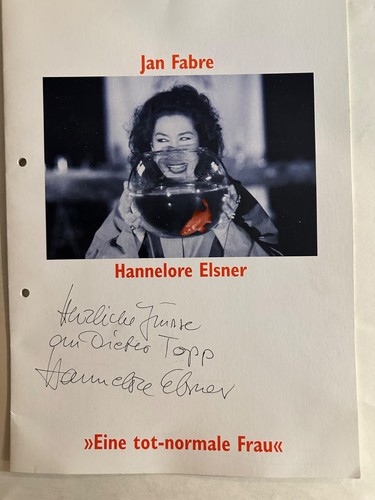 Jan Fabre
Hannelore Elsner
Herzliche Grüsse
an Dieter Topp
Hannelore Elsner
»Eine tot-normale Frau«